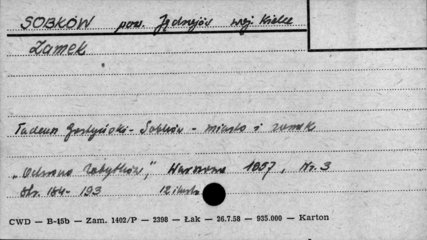 SOBKÓW pow. Jędrzejów woj. Kielce
Zamek
Tadeusz - Sobków - miasto i zamek
"Ochrona Zabytków", Warszawa 1957, Nr. 3
Str. 184-193 12 ilustr.
CWD — B-15b — Zam. 1402/P — 2398 — Łak — 26.7.58 — 935.000 — Karton